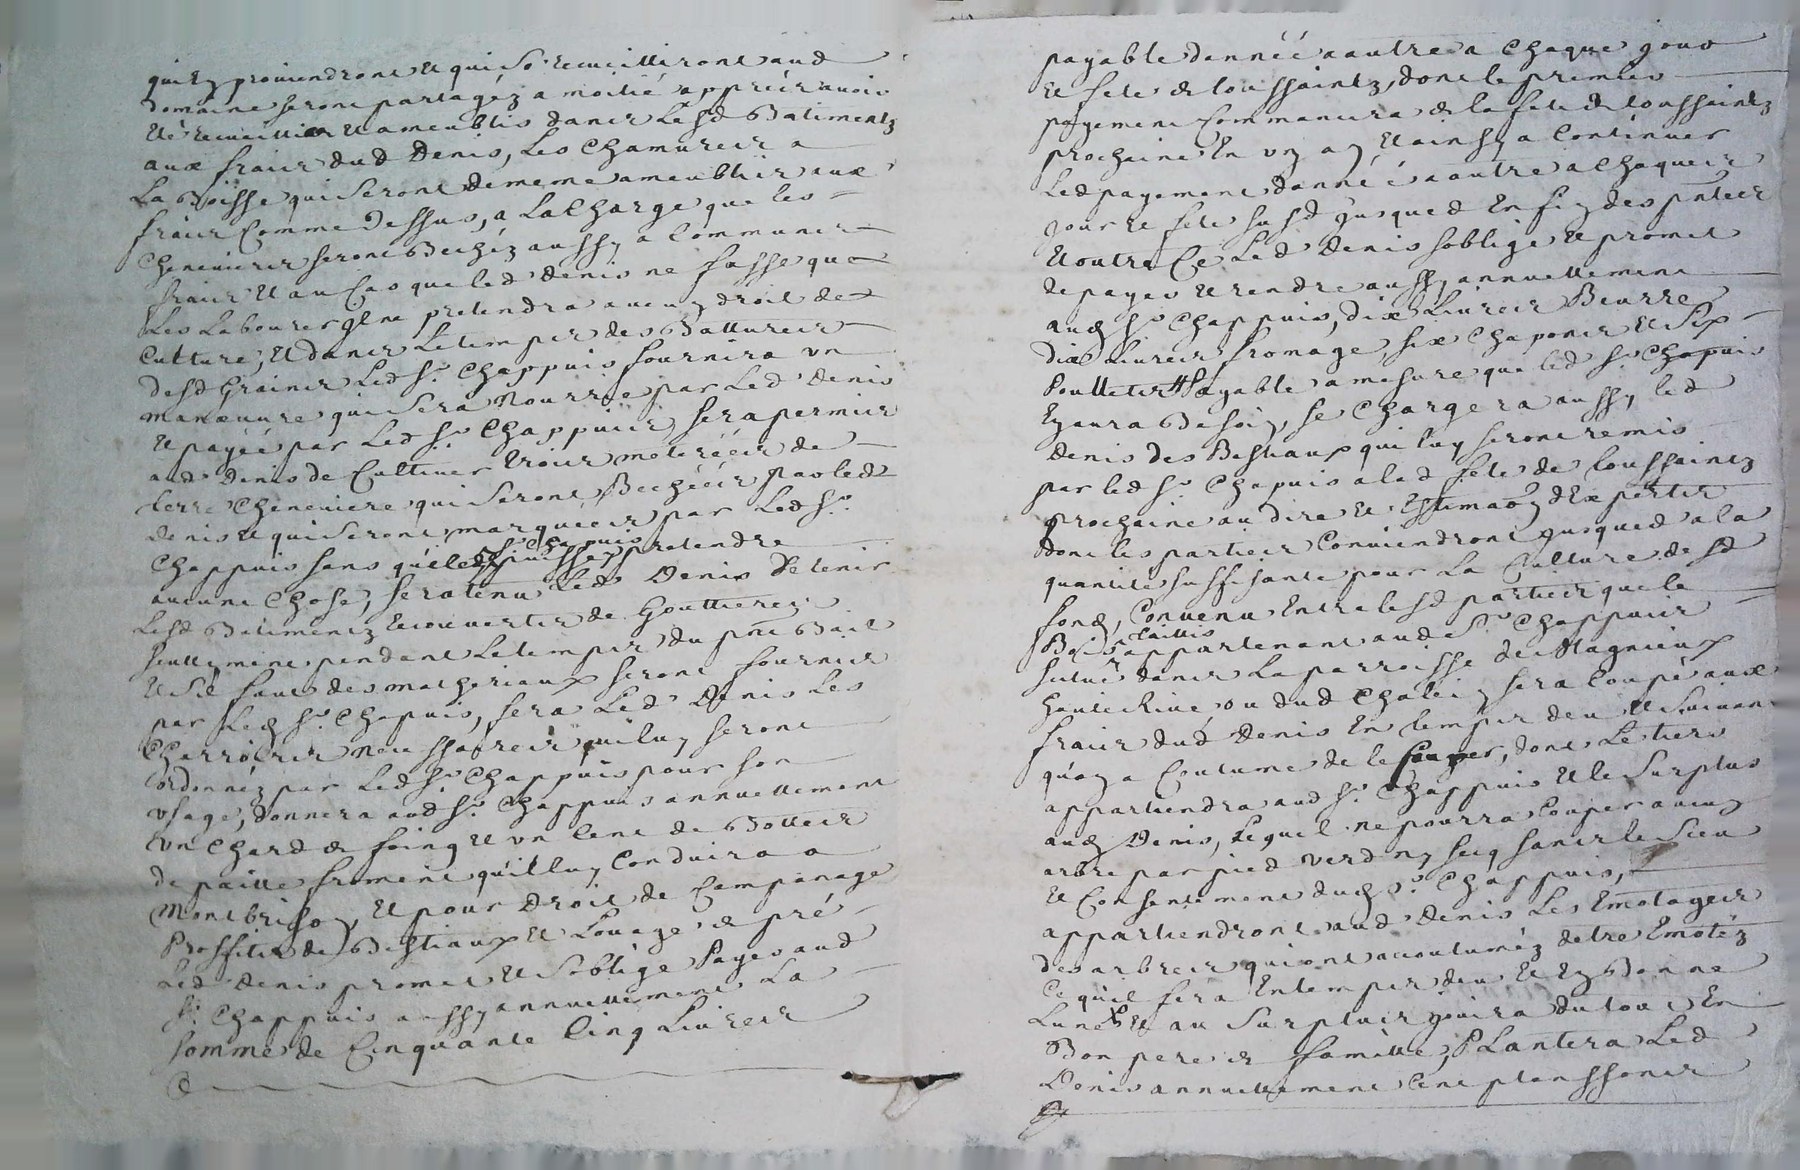 qui en proviendront et qui se recueilliront aud
domaine seront partagéz a moitié apprés avoir
été recueillis et ameublis dans lesd Batimentz
aux fraix dud Denis, les Chamures a
La Boisse qui seront de meme ameublies aux
fraix Comme Dessus, a La Charge que les
Chenevieres seront Bechéz aussy a Communs
fraix et au Cas que led Denis ne fasse que
Les Labourer Il ne pretendra aucun droit de
Culture, et dans Le temps des Battures
desd Grains Led Sr. Chappuis fournira un
manœuvre qui sera Nourrie par Led Denis
et payée par Led Sr. Chappuis, sera permis
aud Denis de Cultiver trois meterées de
terre Cheneviere qui seront Bechées par led
Denis et qui seront marquées par Led Sr.
Chappuis sans qu'il led Sr Chapuis puisse pretendre
aucune Chose, sera tenu Led Denis de tenir
Lesd Batimentz recouverts de Gouttieres
seullement pendant Le temps du pnt Bail
et s'il faut des matheriaux seront fournis
par Led Sr. Chapuis, fera Led Denis Les
Charrois Necessaires qui luy seront
ordonnéz par Led Sr. Chappuis pour son
usage, donnera aud Sr. Chappuis annuellement
un Chard de foing et un Cent de Bottes
de paille froment qu'il luy Conduira a
Montbrison, et pour Droit de Campanage
Proffits de Bestiaux et Louage de pré
Led Denis promet et s'oblige Payer aud
Sr. Chappuis aussy annuellement La
somme de Cinquante Cinq Livres
payable d'année a autre a Chaque jour
et fete de toussaintz, dont le premier
payement Commancera a la fete de toussaintz
prochaine En un an et ainsy a Continuer
Led payement d'année a autre a Chaques
jour et fete susd jusques En fin des pntes
et outre Ce Led Denis s'oblige et promet
de payer et rendre aussy annuellement
aud Sr. Chappuis, dix Livres Beurre
dix Livres fromage, six Chapons et six
Poullets Payable a mesure que led Sr. Chapuis
En aura Besoin, se Chargera aussy led
Denis des Bestiaux qui luy seront remis
par led Sr. Chapuis a lad fete de toussaintz
prochaine au dire et Estimaon d'Experts
dont les parties Conviendront jusques a la
quantité suffisante pour La Culture desd
fond, Convenu Entre lesd parties que le
Bois taillis appartenant aud Sr Chappuis
situé dans La parroisse de Magnieux
hauterive ou dud Chalain sera Coupé aux
fraix dud Denis En temps deu et suivant
qu'on a Coutume de le Couper, dont Le tiers
appartiendra aud Sr. Chappuis et le surplus
aud Denis, Lequel ne pourra Couper aucun
arbre par pied verd ny secq sans le sceu
et Consentement dud Sr. Chappuis,
appartiendront aud Denis Les Emotages
des arbres qui ont accoutuméz detre Emotéz
Ce qu'il fera En temps deu et En Bonne
Lune et au surplus jouira du tout En
Bon pere de famille, Plantera Led
Denis annuellement Cent planssons